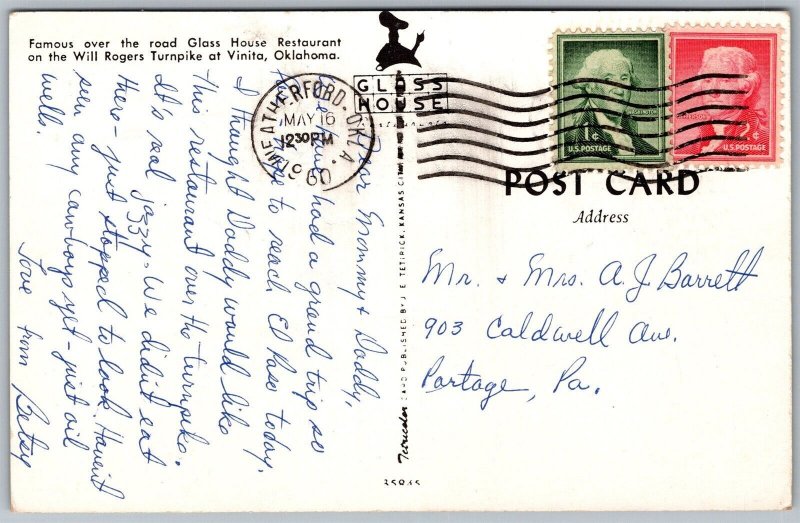 Famous over the road Glass House Restaurant
on the Will Rogers Turnpike at Vinita, Oklahoma.
GLASS
HOUSE
WEATHERFORD, OKLA.
MAY 16
1230 PM
1960
1¢
U.S. POSTAGE
2¢
U.S. POSTAGE
POST CARD
Address
Mr. & Mrs. A. J. Barrett
903 Caldwell Ave.
Portage, Pa.
Dear Mommy & Daddy,
We have had a grand trip so
to reach El Paso today.
I thought Daddy would like
this restaurant over the turnpike.
It's real jazzy - We didn't eat
there - just stopped to look. Haven't
seen any cowboys yet - just oil
wells.
Love from Betsy
Tetricolor CARD PUBLISHED BY J. E. TETIRICK, KANSAS CITY